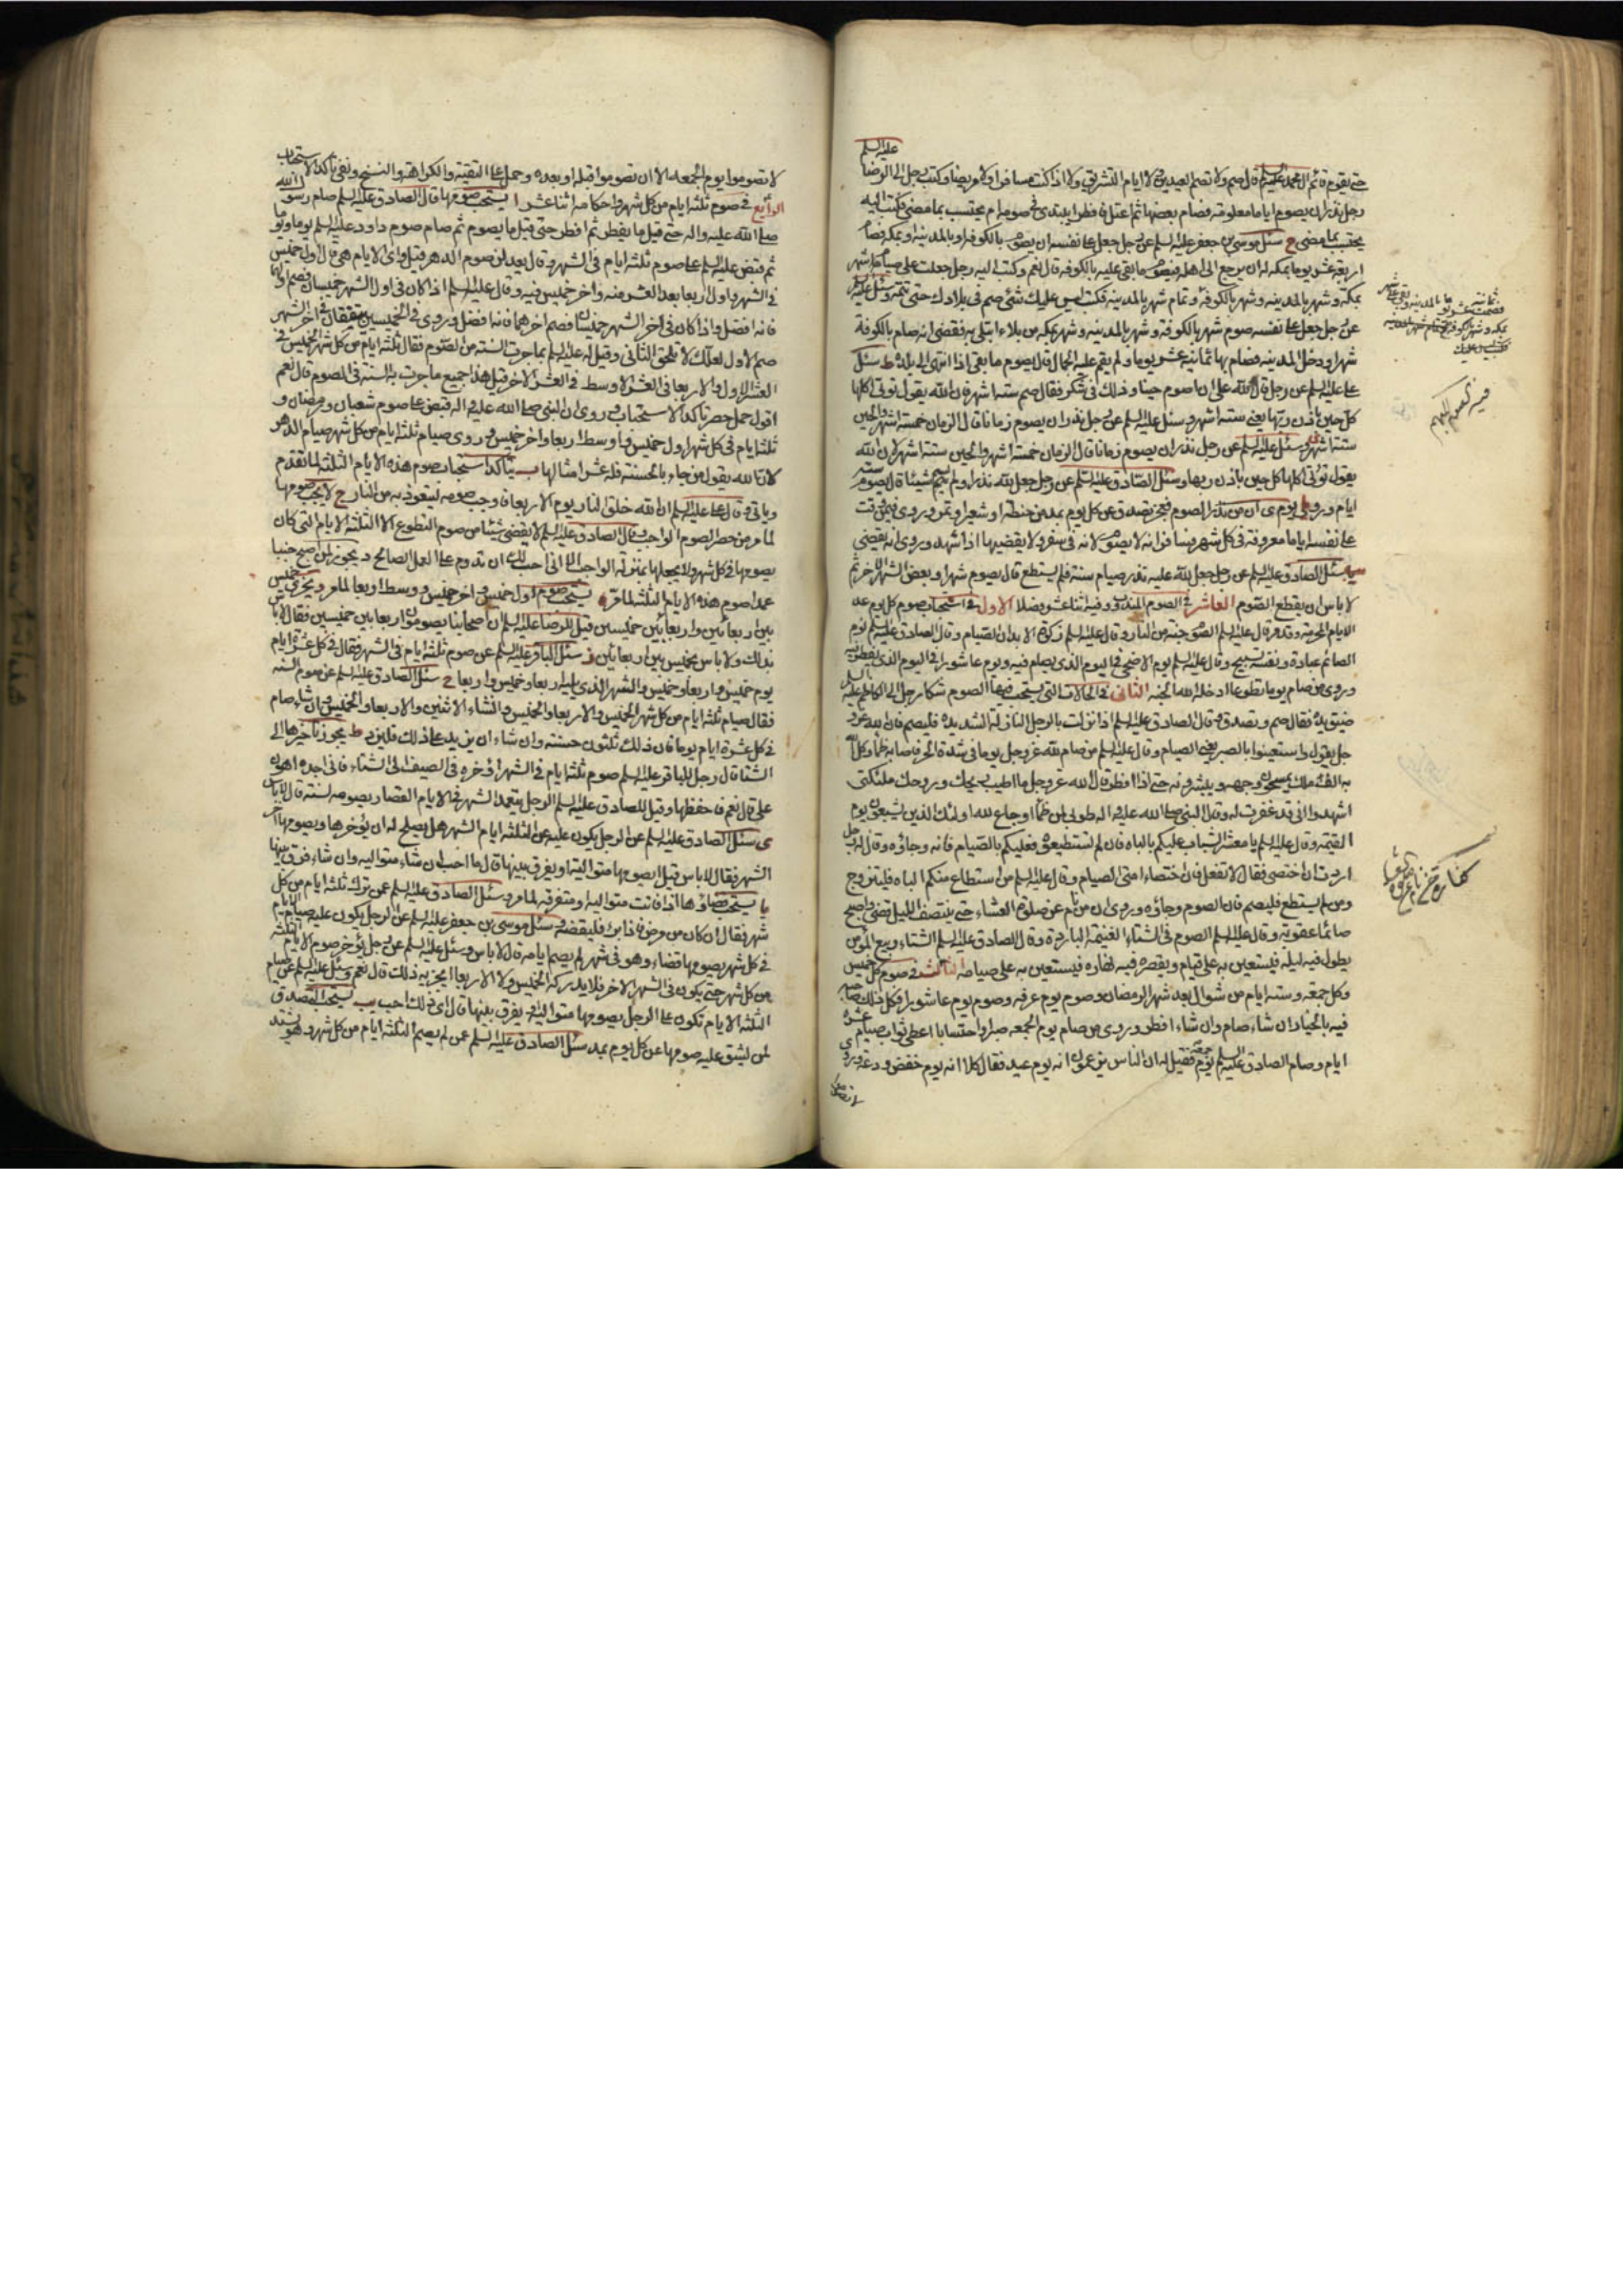 عليه السلم
حتى يقوم قائم ال محمد عليهم السلم قال صم ولا تصم العيدين ولا ايام التشريق ولا اذا كنت مسافرا ولا مريضا وكتب رجل الى الرضا
رجل نذر ان يصوم اياما معلومة فصام بعضها ثم اعتل فافطر ايبتدئ في صومه ام يحتسب بما مضى فكتب اليه
يحتسب بما مضى ح سئل موسى بن جعفر عليه السلم عن رجل جعل على نفسه ان يصوم بالكوفة او بالمدينة او بمكة فصام
اربعة عشر يوما بمكة له ان يرجع الى اهله فيصوم ما بقي عليه بالكوفة قال نعم وكتب اليه رجل جعلت علي صيام شهر
بمكة وشهر بالمدينة وشهر بالكوفة وتمام شهر بالمدينة فكتب ليس عليك شئ صم في بلادك حتى تتمه وسئل عليه السلم
عن رجل جعل على نفسه صوم شهر بالكوفة وشهر بالمدينة وشهر بمكة من بلاء ابتلي به فقضى انه صام بالكوفة
شهرا ودخل المدينة فصام بها ثمانية عشر يوما ولم يقم عليه الجمال قال يصوم ما بقي اذا انتهى الى بلده ط سئل
علي عليه السلم عن رجل قال لله علي ان اصوم حينا وذلك في شكر فقال صم ستة اشهر فان الله يقول تؤتي اكلها
كل حين باذن ربها يعني ستة اشهر وسئل عليه السلم عن رجل نذر ان يصوم زمانا قال الزمان خمسة اشهر والحين
ستة اشهر وسئل عليه السلم عن رجل نذر ان يصوم زمانا قال الزمان خمسة اشهر والحين ستة اشهر لان الله
يقول تؤتي اكلها كل حين باذن ربها وسئل الصادق عليه السلم عن رجل جعل لله نذرا ولم يسم شيئا قال يصوم ستة
ايام وروي يوم ى ان من نذر الصوم فعجز تصدق عن كل يوم بمد من حنطة او شعير او تمر وروي فيمن وقت
على نفسه اياما معروفة في كل شهر فسافر انه لا يصوم لانه في سفر ولا يقضيها اذا شهد وروي انه يقضي
سئل الصادق عليه السلم عن رجل جعل لله عليه نذر صيام سنة فلم يستطع قال يصوم شهرا وبعض الشهر الاخر ثم
لا باس ان يقطع الصوم العاشر في الصوم المندوب وفيه اثنا عشر فصلا الاول في استحباب صوم كل يوم عدا
الايام المحرمة وقد مر قال عليه السلم الصوم جنة من النار وقال عليه السلم زكوة الابدان الصيام وقال الصادق عليه السلم نوم
الصائم عبادة ونفسه تسبيح وقال عليه السلم يوم الاضحى في اليوم الذي يصام فيه ويوم عاشورا في اليوم الذي يفطر فيه
وروي من صام يوما تطوعا ادخله الله الجنة الثاني في الحالات التي يستحب فيها الصوم شكا رجل الى الكاظم عليه السلم
ضيق يده فقال صم وتصدق وقال الصادق عليه السلم اذا نزلت بالرجل النازلة الشديدة فليصم فان الله عز و
جل يقول واستعينوا بالصبر يعني الصيام وقال عليه السلم من صام لله عز وجل يوما في شدة الحر فاصابه ظماء وكل الله
به الف ملك يمسحون وجهه ويبشرونه حتى اذا افطر قال الله عز وجل ما اطيب ريحك وروحك ملئكتي
اشهدوا اني قد غفرت له وقال النبي صلى الله عليه واله طوبى لمن ظمأ او جاع لله اولئك الذين يشبعون يوم
القيمة وقال عليه السلم يا معشر الشباب عليكم بالباه فان لم تستطيعوه فعليكم بالصيام فانه وجاؤه وقال له رجل
اردت ان اختصي فقال لا تفعل فان اختصاء امتي الصيام وقال عليه السلم من استطاع منكم الباه فليتزوج
ومن لم يستطع فليصم فان الصوم وجاؤه وروي ان من نام عن صلوة العشاء حتى ينتصف الليل قضى واصبح
صائما عقوبة وقال عليه السلم الصوم في الشتاء الغنيمة الباردة وقال الصادق عليه السلم الشتاء ربيع المؤمن
يطول فيه ليله فيستعين به على قيامه ويقصر فيه نهاره فيستعين به على صيامه الثالث في صوم كل خميس
وكل جمعة وستة ايام من شوال بعد شهر رمضان وصوم يوم عرفة وصوم يوم عاشورا فكل ذلك صاحبه
فيه بالخيار ان شاء صام وان شاء افطر وروي من صام يوم الجمعة صبرا واحتسابا اعطي ثواب صيام عشرة
ايام وصام الصادق عليه السلم يوم جمعة فقيل له ان الناس يزعمون انه يوم عيد فقال كلا انه يوم خفض ودعة وروي
لا تصوموا
لا تصوموا يوم الجمعة الا ان تصوموا قبله او بعده وحمل على التقية والكراهة والنسخ ونفي تاكد الاستحباب
الرابع في صوم ثلثة ايام من كل شهر واحكامه اثنا عشر ا يستحب صومها قال الصادق عليه السلم صام رسول الله
صلى الله عليه واله حتى قيل ما يفطر ثم افطر حتى قيل ما يصوم ثم صام صوم داود عليه السلم يوما ويوما
ثم قبض عليه السلم على صوم ثلثة ايام في الشهر وقال يعدلن صوم الدهر قيل واي الايام هي قال اول خميس
في الشهر واول اربعا بعد العشر منه واخر خميس فيه وقال عليه السلم اذا كان في اول الشهر خميسان فصم اولهما
فانه افضل واذا كان في اخر الشهر خميسان فصم اخرهما فانه افضل وروي في الخميسين يتفقان في اخر الشهر
صم الاول لعلك لا تلحق الثاني وقيل له عليه السلم بما جرت السنة من الصوم فقال ثلثة ايام من كل شهر الخميس في
العشر الاول والاربعا في العشر الاوسط في العشر الاخر قيل هذا جميع ما جرت به السنة في الصوم قال نعم
اقول حمل حصر تاكد الاستحباب وروي ان النبي صلى الله عليه واله قبض على صوم شعبان ورمضان و
ثلثة ايام في كل شهر اول خميس واوسط اربعا واخر خميس وروي صيام ثلثة ايام من كل شهر صيام الدهر
لان الله يقول من جاء بالحسنة فله عشر امثالها ب يتاكد استحباب صوم هذه الايام الثلثة لما تقدم
وياتي وقال علي عليه السلم ان الله خلق النار يوم الاربعا فاوجب صومه ليتعوذ به من النار ج لا يجب صومها
لما مر من حصر الصوم الواجب وقال الصادق عليه السلم لا يقضى شيئا من صوم التطوع الا الثلثة الايام التي كان
يصومها في كل شهر ولا يجعلها بمنزلة الواجب الا اني احب لك ان تدوم على العمل الصالح د يجوز لمن اصبح جنبا
عمدا صوم هذه الايام الثلثة لما مر ه يستحب صوم اول خميس واخر خميس ووسط اربعا لما مر ويجزي خميس
بين اربعائين واربعا بين خميسين قيل للرضا عليه السلم ان اصحابنا يصومون اربعا بين خميسين فقال لا باس
بذلك ولا باس بخميس بين اربعائين ز سئل الباقر عليه السلم عن صوم ثلثة ايام في الشهر فقال في كل عشرة ايام
يوم خميس واربعا وخميس والشهر الذي يليه اربعا وخميس واربعا ح سئل الصادق عليه السلم عن صوم السنة
فقال صيام ثلثة ايام من كل شهر الخميس والاربعا والخميس وان شاء الاثنين والاربعا والخميس وان شاء صام
في كل عشرة ايام يوما فان ذلك ثلثون حسنة وان شاء ان يزيد على ذلك فليزد ط يجوز تاخيرها الى
الشتا قال رجل للباقر عليه السلم صوم ثلثة ايام في الشهر اؤخره في الصيف الى الشتاء فاني اجده اهون
علي قال نعم فاحفظها وقيل للصادق عليه السلم الرجل يتعمد الشهر في الايام القصار يصومه لسنة قال لا باس
ى سئل الصادق عليه السلم عن الرجل يكون عليه من الثلثة ايام الشهر هل يصلح له ان يؤخرها ويصومها اخر
الشهر فقال لا باس قيل ايصومها متوالية او يفرق بينها قال ما احب ان شاء متوالية وان شاء فرق بينها
يا يستحب قضاؤها اذا فاتت متوالية او متفرقة لما مر وسئل الصادق عليه السلم عمن ترك ثلثة ايام من كل
شهر فقال ان كان من مرض فاذا برئ فليقضه وسئل موسى بن جعفر عليه السلم عن الرجل يكون عليه صيام الايام
في كل شهر يصومها قضاء وهو في شهر لم يصم ايامه قال لا باس وسئل عليه السلم عن رجل يؤخر صوم الايام الثلثة
من كل شهر حتى يكون في الشهر الاخر فلا يدركه الخميس ولا الاربعا ايجزيه ذلك قال نعم وسئل عليه السلم عن صيام
الثلثة الايام تكون على الرجل يصومها متوالية او يفرق بينها قال اي ذلك احب يب يستحب التصدق
لمن يشق عليه صومها عن كل يوم بمد سئل الصادق عليه السلم عمن لم يصم الثلثة ايام من كل شهر وهو يشتد